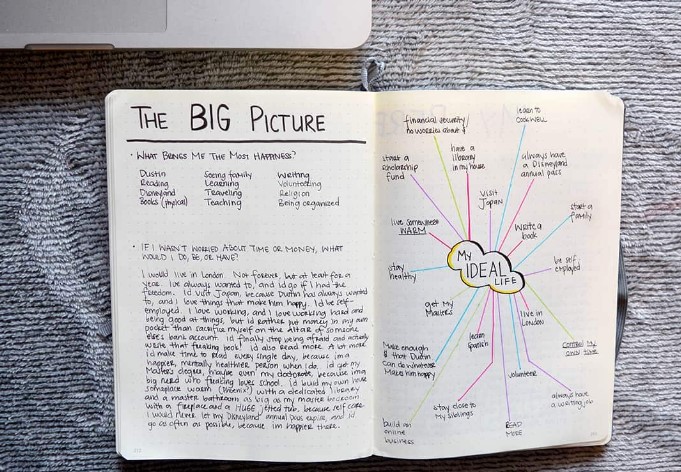 THE BIG PICTURE
• WHAT BRINGS ME THE MOST HAPPINESS?
Dustin
Reading
Disneyland
Books (physical)
Seeing family
Learning
Traveling
Teaching
Writing
Volunteering
Religion
Being organized
• IF I WASN'T WORRIED ABOUT TIME OR MONEY, WHAT
WOULD I DO, BE, OR HAVE?
I would live in London. Not forever, but at least for a
year. I've always wanted to, and I'd go if I had the
freedom. I'd visit Japan, because Dustin has always wanted
to, and I love things that make him happy. I'd be self-
employed. I love working, and I love working hard and
being good at things, but I'd rather put money in my own
pocket than sacrifice myself on the altar of someone
else's bank account. I'd finally stop being afraid and actually
write that freaking book! I'd also read more. A lot more.
I'd make time to read every single day, because I'm a
happier, mentally healthier person when I do. I'd get my
Masters degree, maybe even my doctorate, because I'm a
big nerd who freaking loves school. I'd build my own house
someplace warm (Phoenix?) with a dedicated library
and a master bathroom as big as my master bedroom
with a fireplace and a HUGE jetted tub, because self care.
I would never let my Disneyland annual pass expire, and I'd
go as often as possible, because I'm happier there.
financial security/
no worries about $
learn to
COOK WELL
start a
scholarship
fund
have a
library
in my house
always have
a Disneyland
annual pass
visit
Japan
start a
family
live somewhere
WARM
write a
book
MY
IDEAL
LIFE
stay
healthy
be self-
employed
get my
Masters
learn
Spanish
live in
London
control my
own time
make enough
$ that Dustin
can do whatever
makes him happy
volunteer
stay close to
my siblings
always have
a writing job
build an
online
business
READ
MORE